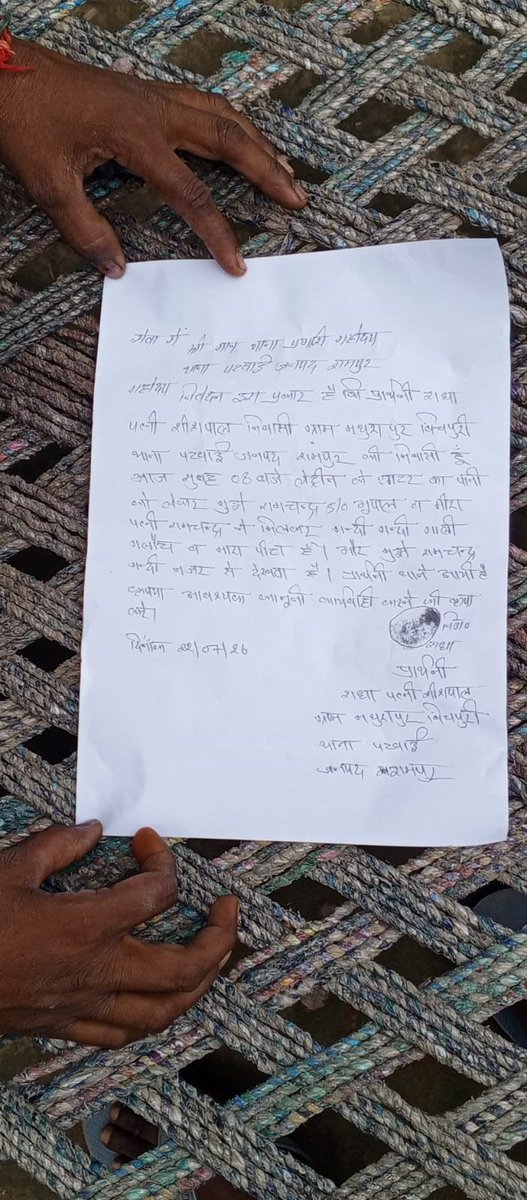 सेवा में श्री मान थाना प्रभारी महोदय
थाना पटवाई जनपद रामपुर
महोदय निवेदन इस प्रकार है कि प्रार्थनी राधा
पत्नी शीशपाल निवासी ग्राम मथुरापुर बिचपुरी
थाना पटवाई जनपद रामपुर की निवासी हूँ
आज सुबह 08 बजे लेट्रीन की वाटर का पानी
को लेकर मुझे रामचन्द्र S/o भुपाल व मीरा
पत्नी रामचन्द्र ने मिलकर गन्दी गन्दी गाली
गलौच व मारा पीटा है। और मुझे रामचन्द्र
गन्दी नजर से देखता है। प्रार्थनी थाने आयी है
कृपया आवश्यक कानूनी कार्यवाही करने की कृपा
करे।
नि०
राधा
दिनांक 22/07/26
प्रार्थनी
राधा पत्नी शीशपाल
ग्राम मथुरापुर बिचपुरी
थाना पटवाई
जनपद रामपुर